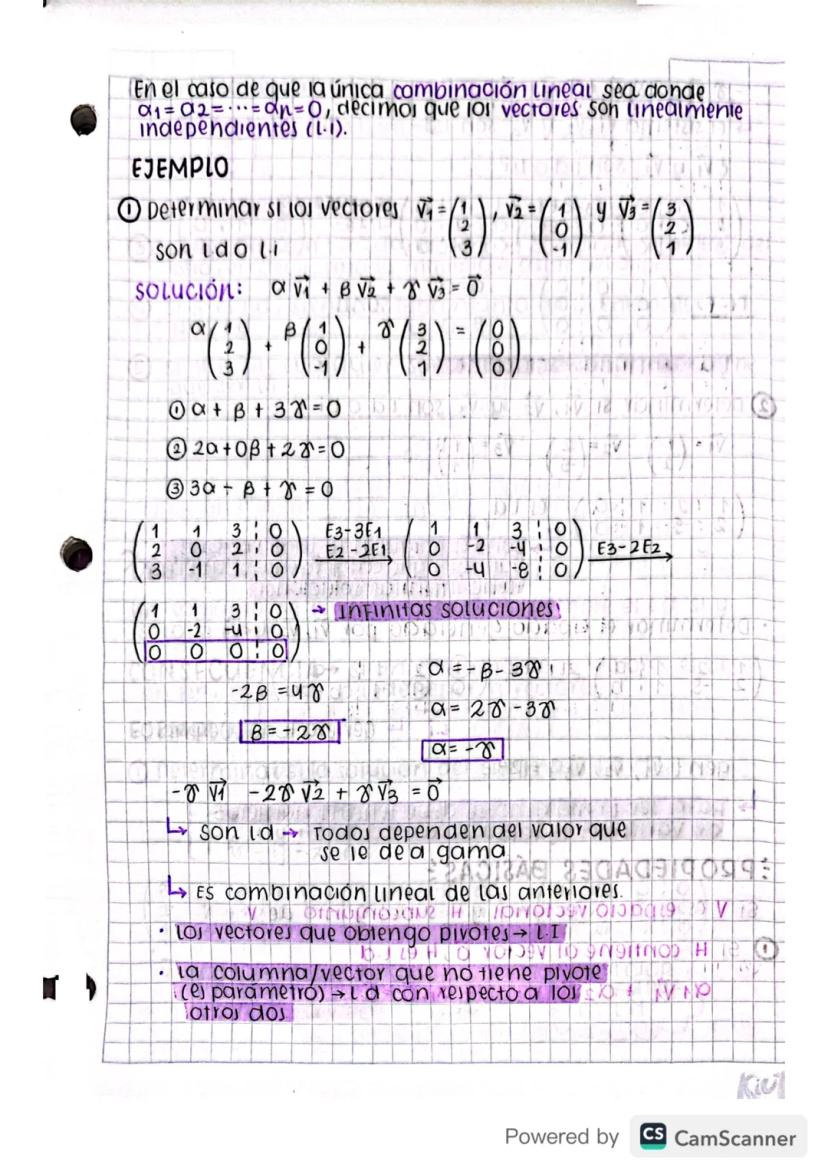 En el caso de que la única combinación lineal sea donde
α1 = α2 = ··· = αn = 0, decimos que los vectores son linealmente
independientes (l.i).
EJEMPLO
① Determinar si los vectores v1 = (1 2 3), v2 = (1 0 -1) y v3 = (3 2 1)
son l d o l.i
SOLUCIÓN: α v1 + β v2 + γ v3 = 0
α (1 2 3) + β (1 0 -1) + γ (3 2 1) = (0 0 0)
① α + β + 3γ = 0
② 2α + 0β + 2γ = 0
③ 3α - β + γ = 0
(1 1 3 ¦ 0) E3-3E1 (1 1 3 ¦ 0)
(2 0 2 ¦ 0) E2-2E1 (0 -2 -4 ¦ 0) E3-2E2
(3 -1 1 ¦ 0) (0 -4 -8 ¦ 0)
(1 1 3 ¦ 0) → INFINITAS SOLUCIONES:
(0 -2 -4 ¦ 0)
(0 0 0 ¦ 0)
α = -β - 3γ
-2β = 4γ
α = 2γ - 3γ
β = -2γ
α = -γ
-γ v1 -2γ v2 + γ v3 = 0
↳ son l d → Todos dependen del valor que
se le de a gama
↳ ES combinación lineal de las anteriores.
· Los vectores que obtengo pivotes → L.I
· La columna/vector que no tiene pivote
(es parámetro) → L d con respecto a los
otros dos
Powered by CS CamScanner